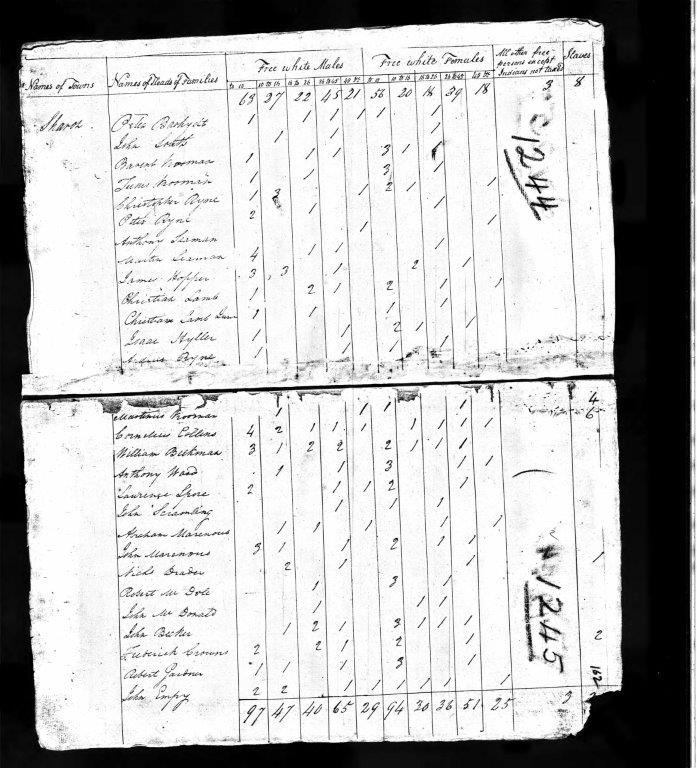 Free white Males Free white Females All other free persons except Indians not taxed Slaves
Names of Towns Names of Heads of Families to 10 10 to 16 16 to 26 26 to 45 45 to 10 10 to 16 16 to 26 26 to 45 45
63 37 22 45 21 56 20 18 39 18 3 8
Sharon Peter 1 1 1 1 1 1
John 1 1 1
Barent Vrooman 1 1 1 3 1
Tunis Vrooman 1 3 1
Christopher Pyne 1 3 1 2 1 1
Peter Pyne 2 1 1
Anthony Seaman 1 1
Martin Seaman 4 1 1 1
James Hopper 3 3 1 2 1
Christian Lamb 1 2 1 2 1 1
Christian Lamb Jun 1 1 1 1
Isaac Hyller 1 1 2 1 1
Pyne 1 1 1 1
1244
4
Martinus Vrooman 1 1 1 1 6
Cornelius Collins 4 2 1 1 1 1 1 1 1
William Beekman 3 1 2 2 2 1 1 1 1
Anthony Ward 1 1 3 1 1
Lawrence Spore 2 1 1 2 1
John 1 1 1
Abraham Marenous 1 1 1 1 1
John Marenous 3 1 1 2 1 1
Drader 2 1 1
Robert Mc Dole 1 3 1
John Mc Donald 1 1 1
John Becker 1 2 1 3 1 1 1 2
Frederick Crowns 2 2 1 2 1
Robert Gardner 1 1 1 3 1
John Empy 2 2 1 1 1 1 1 1
97 47 40 65 29 94 30 36 51 25 3
1245